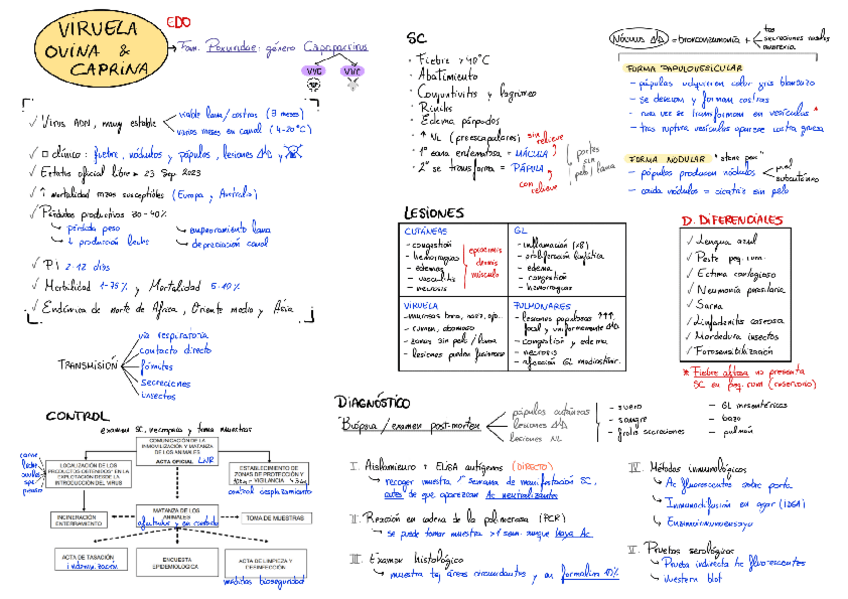 VIRUELA
OVINA &
CAPRINA
EDO
Fam. Poxviridae: género Capripoxvirus
VVO
VVC
✓ Virus ADN, muy estable
viable lana/costras (3 meses)
varios meses en canal (4-20°C)
clínico: fiebre, nódulos y pápulas, lesiones
✓ Estatus oficial libre 23 Sep 2023
✓ ↑ mortalidad razas susceptibles (Europa y Australia)
✓ Pérdidas productivas 30-40%
pérdida peso
↓ producción leche
empeoramiento lana
depreciación canal
✓ PI 2-12 días
✓ Morbilidad 1-75% y Mortalidad 5-10%
✓ Endémica de norte de África, Oriente medio y Asia
TRANSMISIÓN
vía respiratoria
contacto directo
fómites
secreciones
insectos
CONTROL
examen SC, necropsia y toma muestras
COMUNICACIÓN DE LA
INMOVILIZACIÓN Y MATANZA
DE LOS ANIMALES
ACTA OFICIAL LNR
carne
leche
LOCALIZACIÓN DE LOS
PRODUCTOS OBTENIDOS EN LA
EXPLOTACIÓN DESDE LA
INTRODUCCIÓN DEL VIRUS
ESTABLECIMIENTO DE
ZONAS DE PROTECCIÓN Y
VIGILANCIA
control desplazamiento
INCINERACIÓN
ENTERRAMIENTO
MATANZA DE LOS
ANIMALES
afectados y en contacto
TOMA DE MUESTRAS
ACTA DE TASACIÓN
indemnización
ENCUESTA
EPIDEMIOLÓGICA
ACTA DE LIMPIEZA Y
DESINFECCIÓN
medidas bioseguridad
SC
· Fiebre >40°C
· Abatimiento
· Conjuntivitis y lagrimeo
· Rinitis
· Edema párpados
· ↑ NL (preescapulares)
· 1º zona eritematosa = MÁCULA
sin relieve
· 2º se transforma = PÁPULA
con relieve
partes
sin
pelo/lana
LESIONES
CUTÁNEAS
- congestión
- hemorragias
- edemas
- vasculitis
- necrosis
epidermis
dermis
músculo
GL
- inflamación (x8)
- proliferación linfática
- edema
- congestión
- hemorragias
VIRUELA
- mucosas boca, nariz, ojo..
- rumen, abomaso
- zonas sin pelo / lana
PULMONARES
- lesiones populosas ↑↑↑
focal y uniformemente
- congestión y edema
- necrosis
- afección GL mediastínic.
Nódulos = bronconeumonía +
tos
secreciones nasales
FORMA PAPULOVESICULAR
- pápulas adquieren color gris blancuzco
- se desecan y forman costras
- rara vez se transforman en vesículas *
- tras ruptura vesículas aparece costra gruesa
FORMA NODULAR "stone pox"
- pápulas producen nódulos
piel
subcutáneo
- caída nódulos = cicatriz sin pelo
D. DIFERENCIALES
✓ Lengua azul
✓ Peste peq. rum.
✓ Ectima contagioso
✓ Neumonía parasitaria
✓ Sarna
✓ Linfadenitis caseosa
✓ Mordedura insectos
✓ Fotosensibilización
* Fiebre aftosa no presenta
SC en peq. rum (reservorio)
DIAGNÓSTICO
Biopsia / examen post-mortem
pápulas cutáneas
lesiones
lesiones NL
- suero
- sangre
- frotis secreciones
- GL mesentéricos
- bazo
- pulmón
I. Aislamiento + ELISA antígenos (DIRECTO)
recoger muestra 1ª semana de manifestación SC,
antes de que aparezcan Ac neutralizantes
II. Reacción en cadena de la polimerasa (PCR)
se puede tomar muestra >1 sem. aunque haya Ac
III. Examen histológico
muestra tej. áreas circundantes y en formalina 10%
IV. Métodos inmunológicos
Ac fluorescentes sobre porta
Inmunodifusión en agar (IDGA)
Enzimoinmunoensayo
V. Pruebas serológicas
Prueba indirecta Ac fluorescentes
Western blot